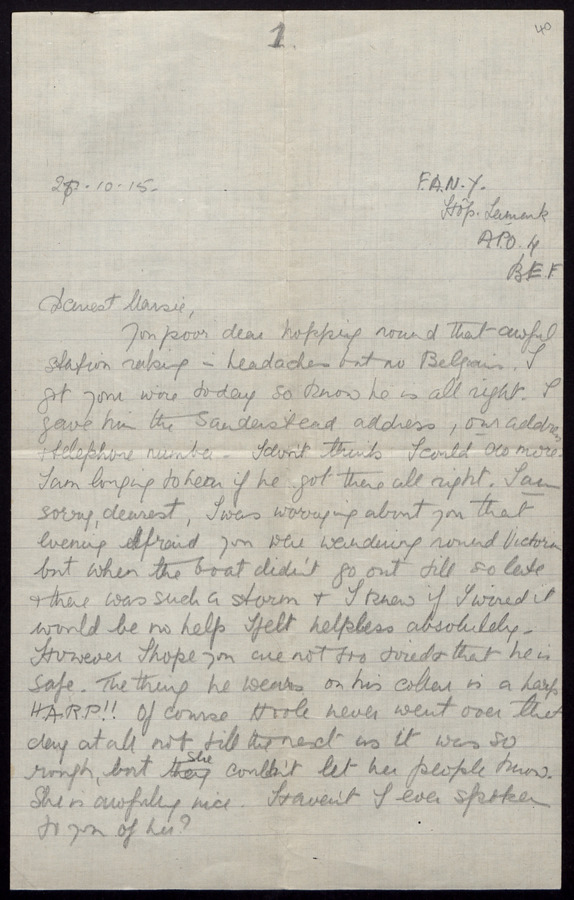 1.
40
27-10-15-
F.A.N.Y.
Hôp. Lamark
APO. 4
BEF
Dearest Marsie,
You poor dear hopping round that awful
station making - headaches but no Belgian. I
got your wire today so know he is all right. I
gave him the Sanderstead address, our address
+ telephone number - I don't think I could do more.
I am longing to hear if he got there all right. I am
sorry, dearest, I was worrying about you that
evening afraid you were wandering round Victoria
but when the boat didn't go out till so late
+ there was such a storm + I knew if I wired it
would be no help I felt helpless absolutely -
However I hope you are not too tired & that he is
safe. The thing he wears on his collar is a harp
HARP!! Of course Hoole never went over that
day at all not till the next as it was so
rough, but she couldn't let her people know.
She is awfully nice. Haven't I ever spoken
to you of her?